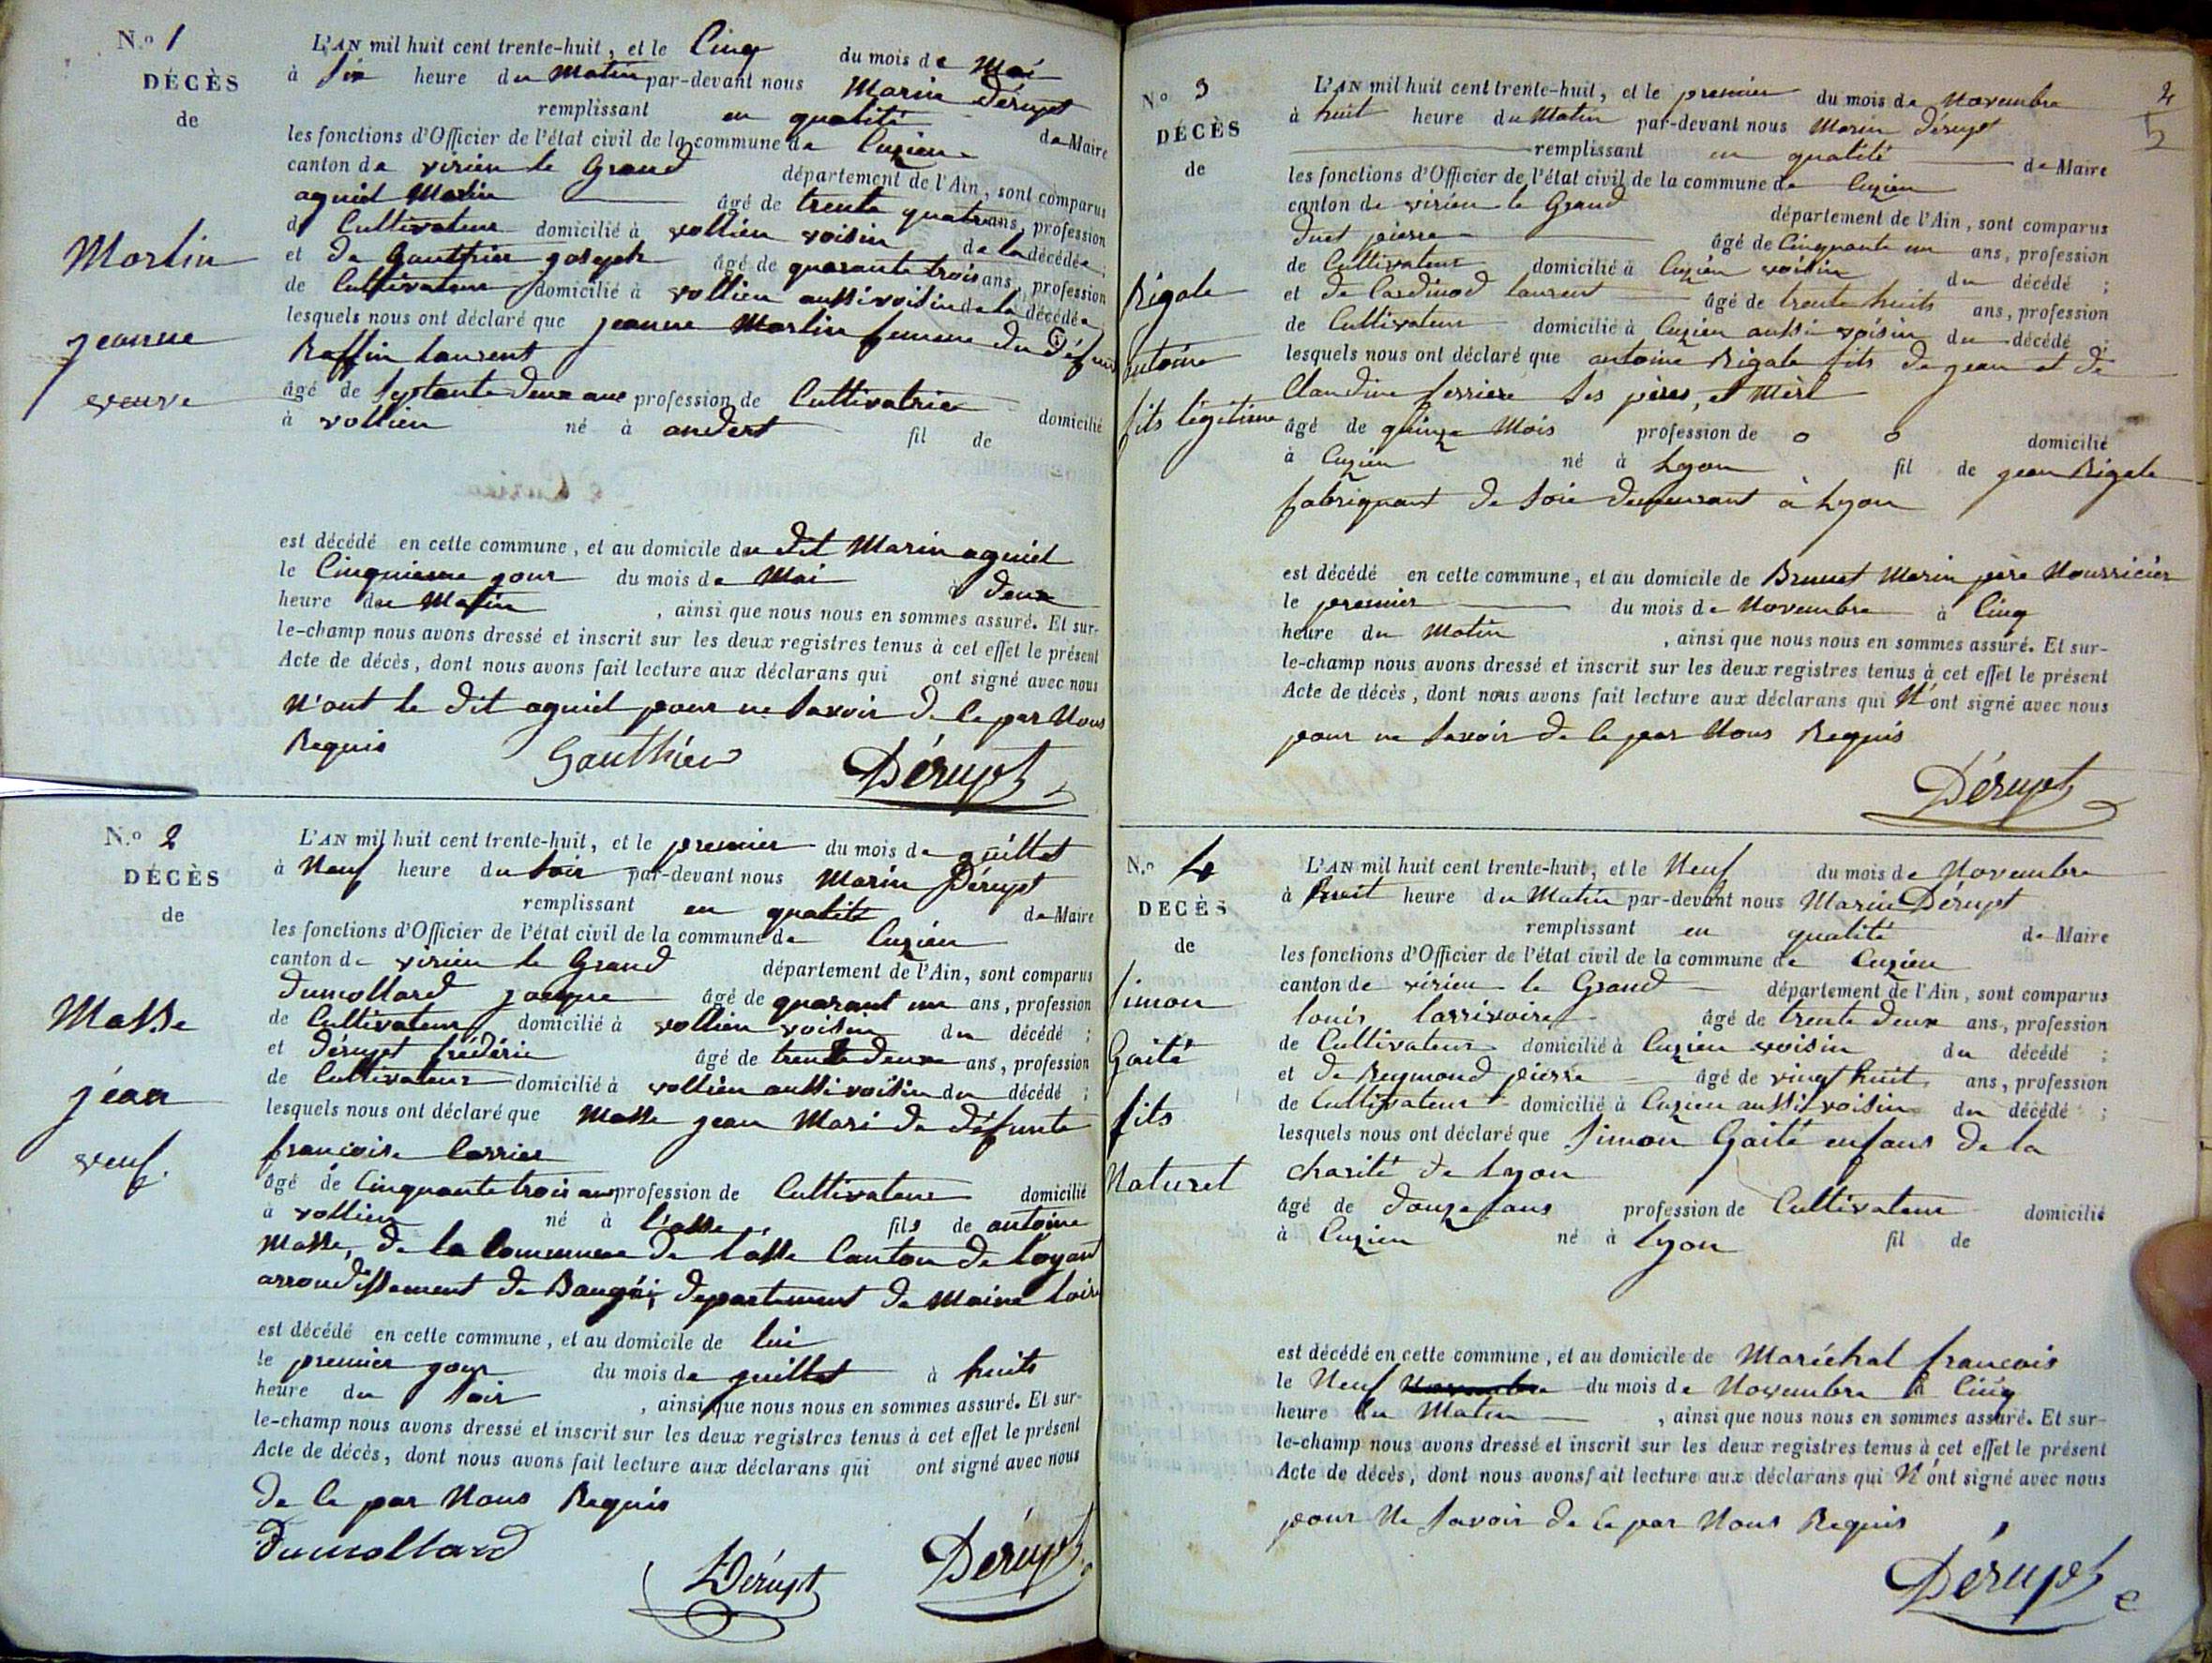 N.o 1
DÉCÈS
de
Martin
jeanne
veuve
L'AN mil huit cent trente-huit, et le Cinq du mois de Mai
à six heure du Matin par-devant nous Marin Dérupt
remplissant en qualité de Maire
les fonctions d'Officier de l'état civil de la commune de Cuzieu
canton de virieu le Grand département de l'Ain, sont comparus
aguid Marin âgé de trente quatre ans, profession
de Cultivateur domicilié à vollien voisin de la décédée;
et de Gauthier joseph âgé de quarante trois ans, profession
de Cultivateur domicilié à vollien aussi voisin de la décédée
lesquels nous ont déclaré que jeanne Martin femme du défunt
Raffin laurent
âgé de septante deux ans profession de Cultivatrice domicilié
à vollien né à andert fil de
est décédé en cette commune, et au domicile du dit Marin aguid
le Cinquieme jour du mois de Mai à deux
heure du Matin, ainsi que nous nous en sommes assuré. Et sur-
le-champ nous avons dressé et inscrit sur les deux registres tenus à cet effet le présent
Acte de décès, dont nous avons fait lecture aux déclarans qui ont signé avec nous
N'ont le dit aguid pour ne savoir de ce par Nous
Requis
Gauthier Dérupt
N.o 2
DÉCÈS
de
Masse
jean
veuf.
L'AN mil huit cent trente-huit, et le premier du mois de juillet
à Neuf heure du soir par-devant nous Marin Dérupt
remplissant en qualité de Maire
les fonctions d'Officier de l'état civil de la commune de Cuzieu
canton de virieu le Grand département de l'Ain, sont comparus
Dumollard jacque âgé de quarant un ans, profession
de Cultivateur domicilié à vollien voisin du décédé;
et dérupt frédéric âgé de trente deux ans, profession
de Cultivateur domicilié à vollien aussi voisin du décédé;
lesquels nous ont déclaré que Masse jean Mari de défunte
francoise Carrier
âgé de Cinquante trois ans profession de Cultivateur domicilié
à vollien né à l'asse fils de antoine
Masse, de la Commune de l'asse Canton de Noyant
arrondissement de Baugé, departement de Maine Loire
est décédé en cette commune, et au domicile de lui
le premier jour du mois de juillet à huits
heure du soir, ainsi que nous nous en sommes assuré. Et sur-
le-champ nous avons dressé et inscrit sur les deux registres tenus à cet effet le présent
Acte de décès, dont nous avons fait lecture aux déclarans qui ont signé avec nous
de ce par Nous Requis
Dumollard
Dérupt Dérupt
2
5
No 3
DÉCÈS
de
Rigale
antoine
fils légitime
L'AN mil huit cent trente-huit, et le premier du mois de Novembre
à huit heure du Matin par-devant nous Marin Dérupt
remplissant en qualité de Maire
les fonctions d'Officier de l'état civil de la commune de Cuzieu
canton de virieu le Grand département de l'Ain, sont comparus
Duet pierre âgé de Cinquante un ans, profession
de Cultivateur domicilié à Cuzieu voisin du décédé;
et de Cardinod laurent âgé de trente huits ans, profession
de Cultivateur domicilié à Cuzieu aussi voisin du décédé;
lesquels nous ont déclaré que antoine Rigale fils de jean et de
Claudine ferriere ses pères, et Mère
âgé de quinze Mois profession de o o domicilié
à Cuzieu né à Lyon fil de jean Rigale
fabriquant de soie demeurant à Lyon
est décédé en cette commune, et au domicile de Brunet Marin père Nourricier
le premier du mois de Novembre à Cinq
heure du Matin, ainsi que nous nous en sommes assuré. Et sur-
le-champ nous avons dressé et inscrit sur les deux registres tenus à cet effet le présent
Acte de décès, dont nous avons fait lecture aux déclarans qui N'ont signé avec nous
pour ne savoir de ce par Nous Requis
Dérupt
N.o 4
DÉCÈS
de
Simon
Gaité
fils
Naturel
L'AN mil huit cent trente-huit, et le Neuf du mois de Novembre
à huit heure du Matin par-devant nous Marin Dérupt
remplissant en qualité de Maire
les fonctions d'Officier de l'état civil de la commune de Cuzieu
canton de virieu le Grand département de l'Ain, sont comparus
louis larrivoire âgé de trente deux ans, profession
de Cultivateur domicilié à Cuzieu voisin du décédé;
et de Reymond pierre âgé de vingt huit ans, profession
de Cultivateur domicilié à Cuzieu aussi voisin du décédé;
lesquels nous ont déclaré que Simon Gaité enfans de la
charité de Lyon
âgé de douze ans profession de Cultivateur domicilié
à Cuzieu né à Lyon fil de
est décédé en cette commune, et au domicile de Maréchal francois
le Neuf Novembre du mois de Novembre à Cinq
heure du Matin, ainsi que nous nous en sommes assuré. Et sur-
le-champ nous avons dressé et inscrit sur les deux registres tenus à cet effet le présent
Acte de décès, dont nous avons fait lecture aux déclarans qui N'ont signé avec nous
pour Ne savoir de ce par Nous Requis
Dérupt